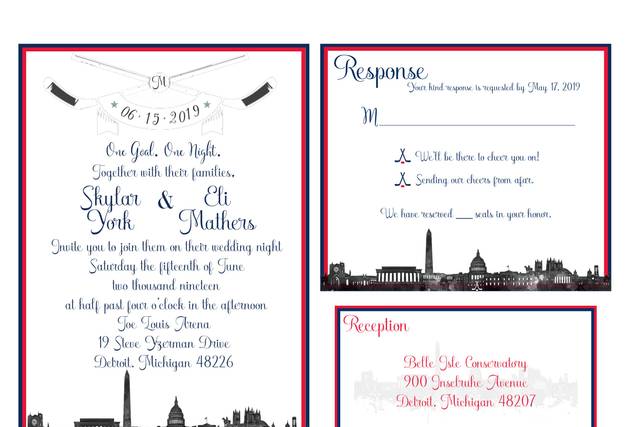 M
06·15·2019
One Goal. One Night.
Together with their families,
Skylar York & Eli Mathers
Invite you to join them on their wedding night
Saturday the fifteenth of June
two thousand nineteen
at half past four o'clock in the afternoon
Joe Louis Arena
19 Steve Yzerman Drive
Detroit, Michigan 48226
Response
Your kind response is requested by May 17, 2019
M
We'll be there to cheer you on!
Sending our cheers from afar.
We have reserved ___ seats in your honor.
Reception
Belle Isle Conservatory
900 Inselruhe Avenue
Detroit, Michigan 48207